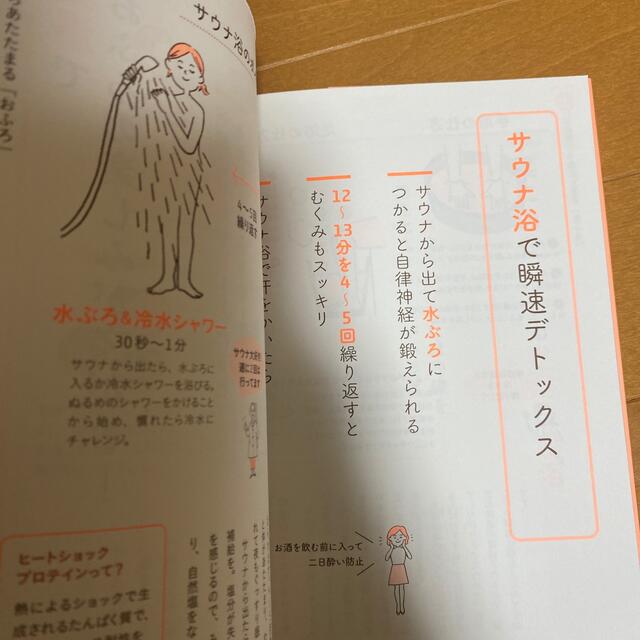 サウナ浴で瞬速デトックス
サウナから出て水ぶろに
つかると自律神経が鍛えられる
12〜13分を4〜5回繰り返すと
むくみもスッキリ
お酒を飲む前に入って
二日酔い防止
あたたまる「おふろ」
サウナ浴の
4〜5回
繰り返す
水ぶろ&冷水シャワー
30秒〜1分
サウナから出たら、水ぶろに
入るか冷水シャワーを浴びる。
ぬるめのシャワーをかけること
から始め、慣れたら冷水に
チャレンジ。
サウナ大好き!
週に2回は
行ってます
ヒートショック
プロテインって?
熱によるショックで生
成されるたんぱく質で、
を感じるので、
補給を。塩分が失
り、自然塩をな